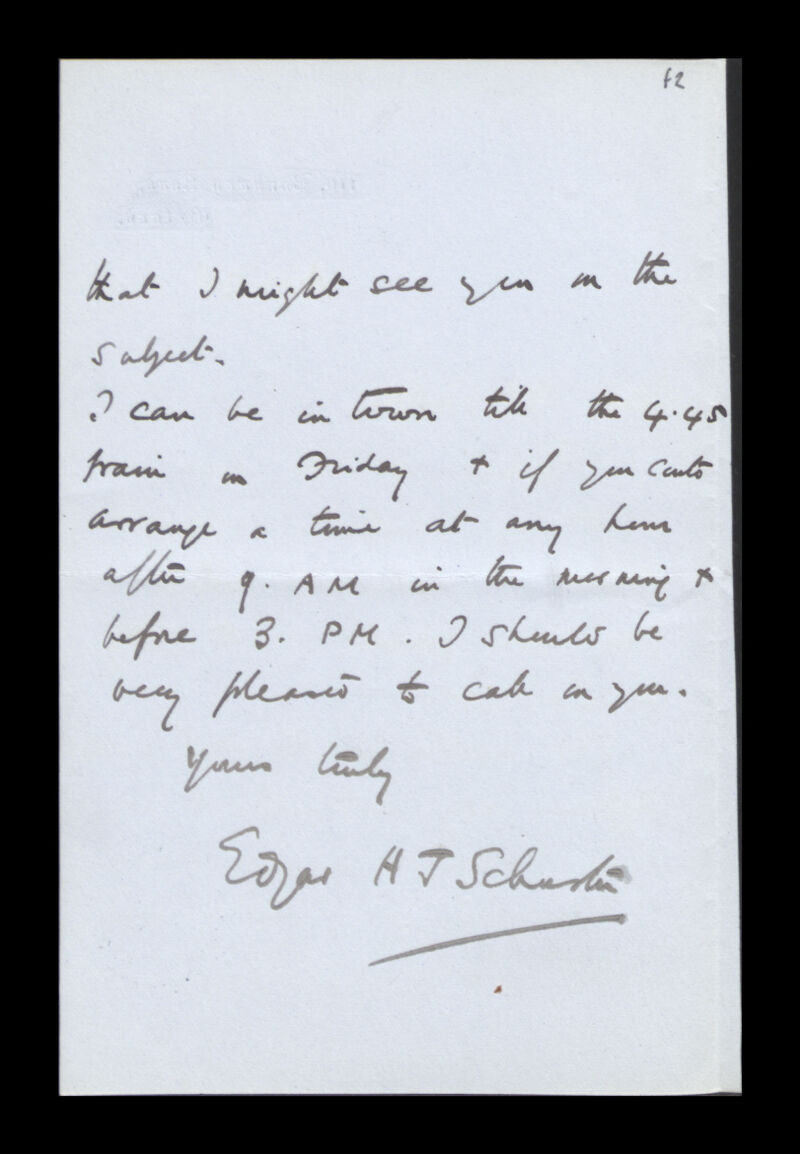 f2
that I might see you on the
subject.
I can be in town till the 4.45
train on Friday + if you could
arrange a time at any hour
after 9. AM in the morning +
before 3. PM. I should be
very pleased to call on you.
Yours truly
Edgar H J Schuster